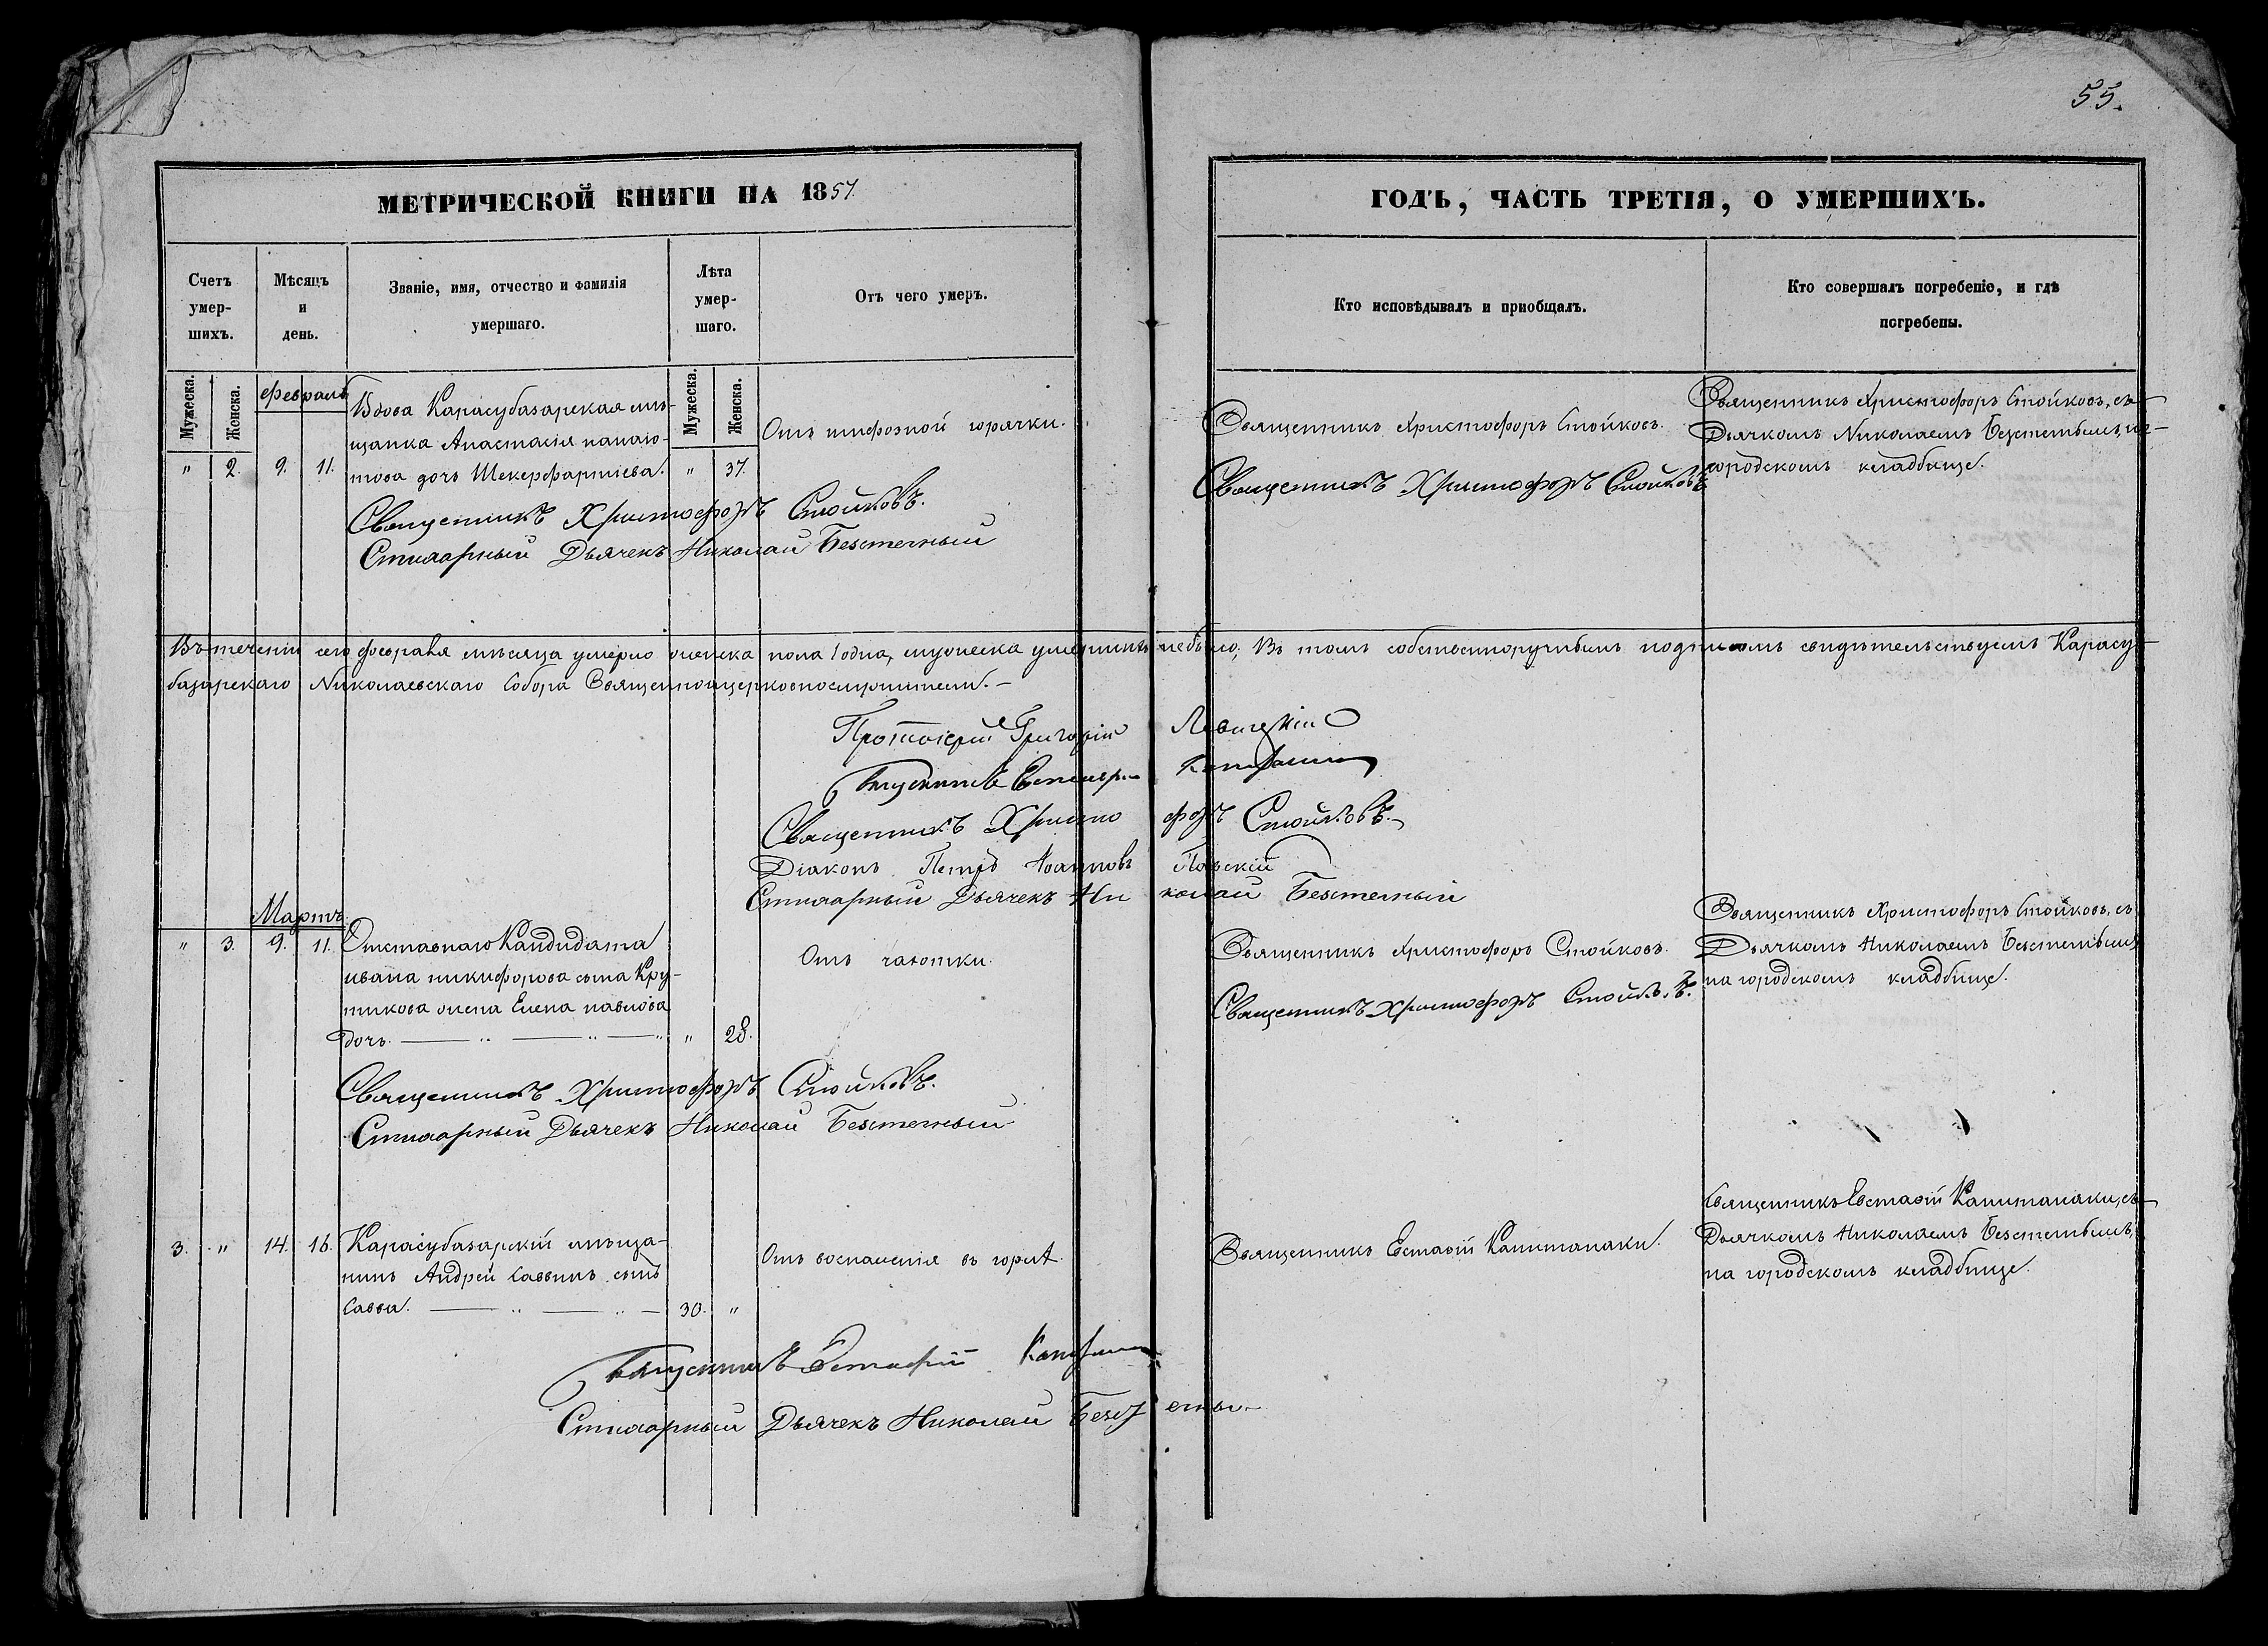 55.
МЕТРИЧЕСКОЙ КНИГИ НА 1857.
ГОДЪ, ЧАСТЬ ТРЕТІЯ, О УМЕРШИХЪ.
Счетъ умер-шихъ.
Мѣсяцъ и день.
Званіе, имя, отчество и фамилія умершаго.
Лѣта умер-шаго.
Отъ чего умеръ.
Кто исповѣдывалъ и пріобщалъ.
Кто совершалъ погребеніе, и гдѣ погребены.
Мужеска.
Женска.
Февраль
Мужеска.
Женска.
Вдова Карасубазарская мѣ-
щанка Анастасія панаіо-
" 2. 9. 11. това дочь Шекерфартіева. " 37.
Отъ тифозной горячки.
Священникъ Христофоръ Стойковъ.
Священникъ Христофоръ Стойковъ
Священникъ Христофоръ Стойковъ, съ
Дьячкомъ Николаемъ Безстетнымъ, на
городскомъ кладбище.
Священникъ Христофоръ Стойковъ.
Стихарный Дьячекъ Николай
Въ теченіи сего февраля мѣсяца умерло женска пола 1 одна, мужеска умершихъ небыло, Въ томъ собственноручнымъ подписомъ свидѣтельствуемъ Карасу-
базарскаго Николаевскаго Собора Священноцерковнослужители.
Протоіерей Григорій Левицкій
Священникъ Христофоръ Стойковъ.
Діаконъ Петръ Іоанновъ
Стихарный Дьячекъ Николай
Мартъ
" 3. 9. 11. Отставнаго Кандидата
ивана никифорова сына Кру-
тикова жена Елена павлова
дочь. " 28.
Отъ чахотки.
Священникъ Христофоръ Стойковъ.
Священникъ Христофоръ Стойковъ.
Священникъ Христофоръ Стойковъ, съ
Дьячкомъ Николаемъ
на городскомъ кладбище.
Священникъ Христофоръ Стойковъ.
Стихарный Дьячекъ Николай
3. " 14. 16. Карасубазарскій мѣща-
нинъ Андрей Саввинъ сынъ
Савва. 30. "
Отъ воспаленія въ горлѣ.
Священникъ Евстафій Капитанаки.
Священникъ Евстафій Капитанаки, съ
Дьячкомъ Николаемъ
на городскомъ кладбище.
Священникъ Евстафій
Стихарный Дьячекъ Николай